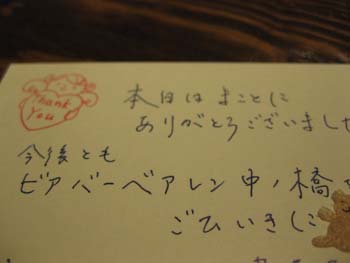 Thank
You
本日は まことに
ありがとうございまし
今後とも
ビアバーベアレン中ノ橋
ごひいきに